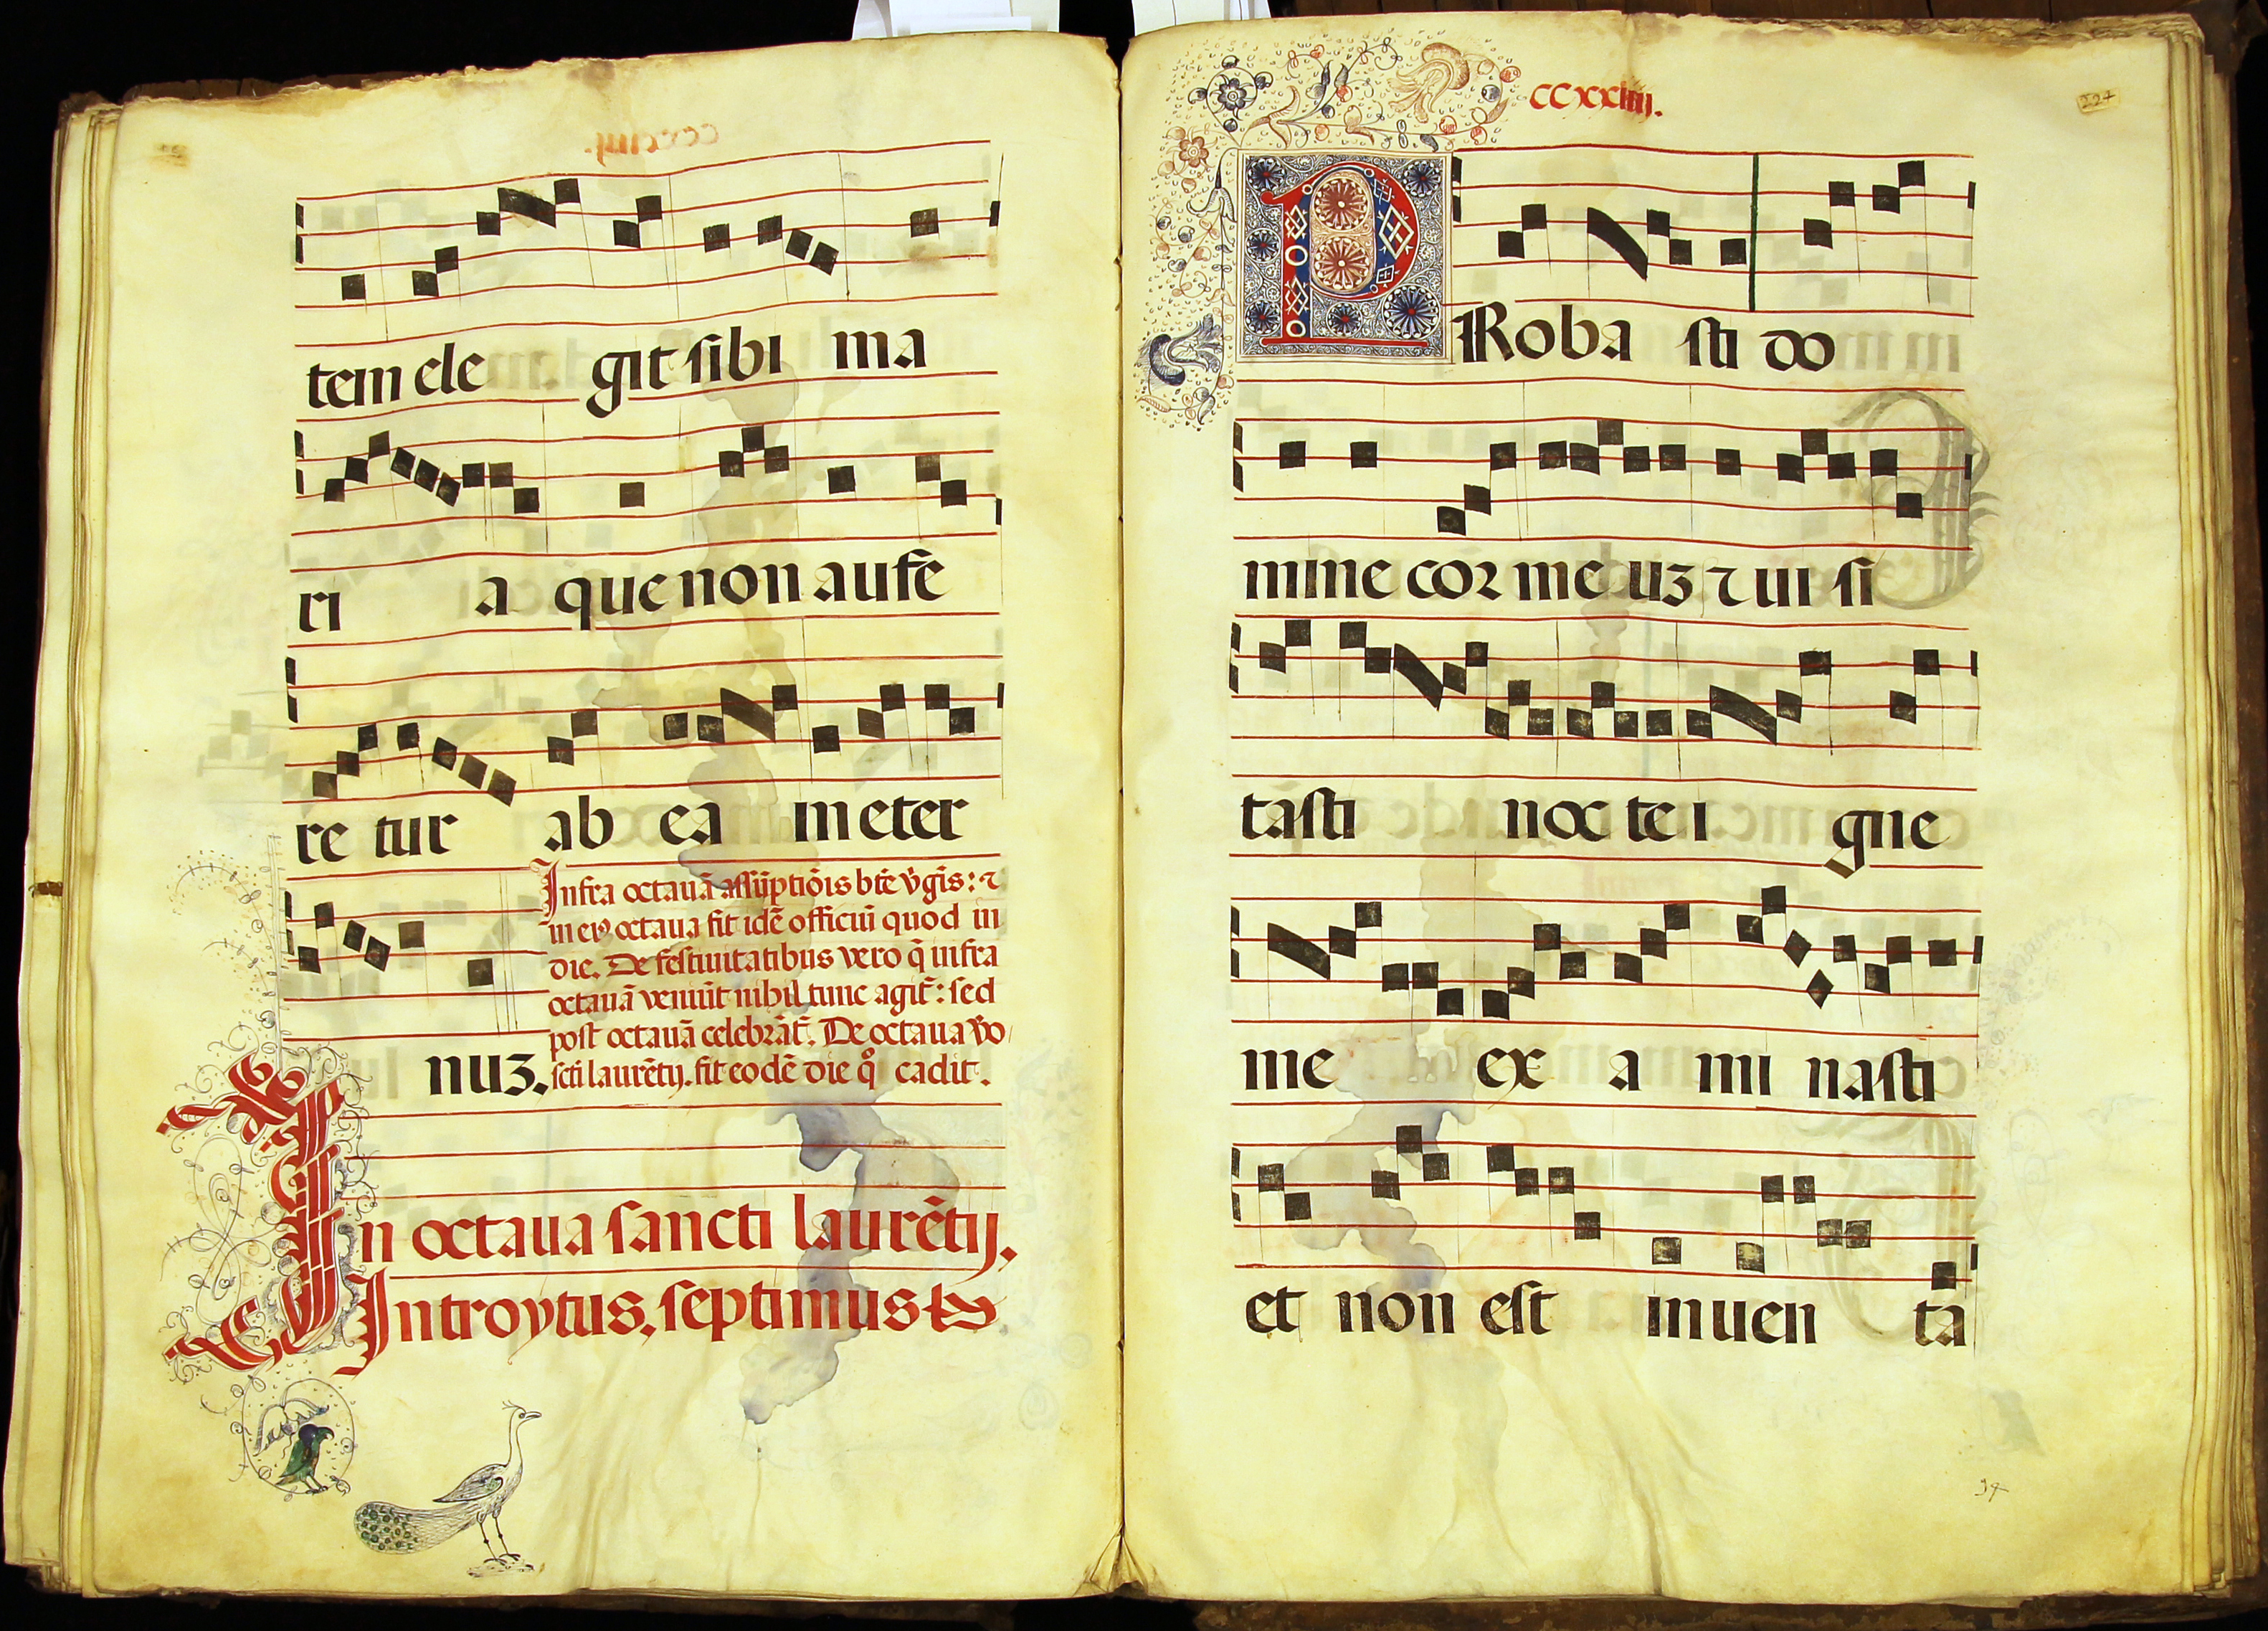 tem ele git sibi ma
ri a que non aufe
re tur ab ea in eter
nuz.
Infra octauā assūptiōis btē v̄gīs: ⁊
in ei⁹ octaua fit idē officiū quod in
die. De festiuitatibus vero q̄ infra
octauā veniūt nihil tunc agit̄: sed
post octauā celebrāt̄. De octaua vo
scti laurētij. fit eodē die q̊ cadit.
In octaua sancti laurētij.
Introytus. septimus
CCXXIIII.
224
PRoba sti do
mine cor me uz ⁊ ui si
tasti noc te i gne
me ex a mi nasti
et non est inuen ta
94